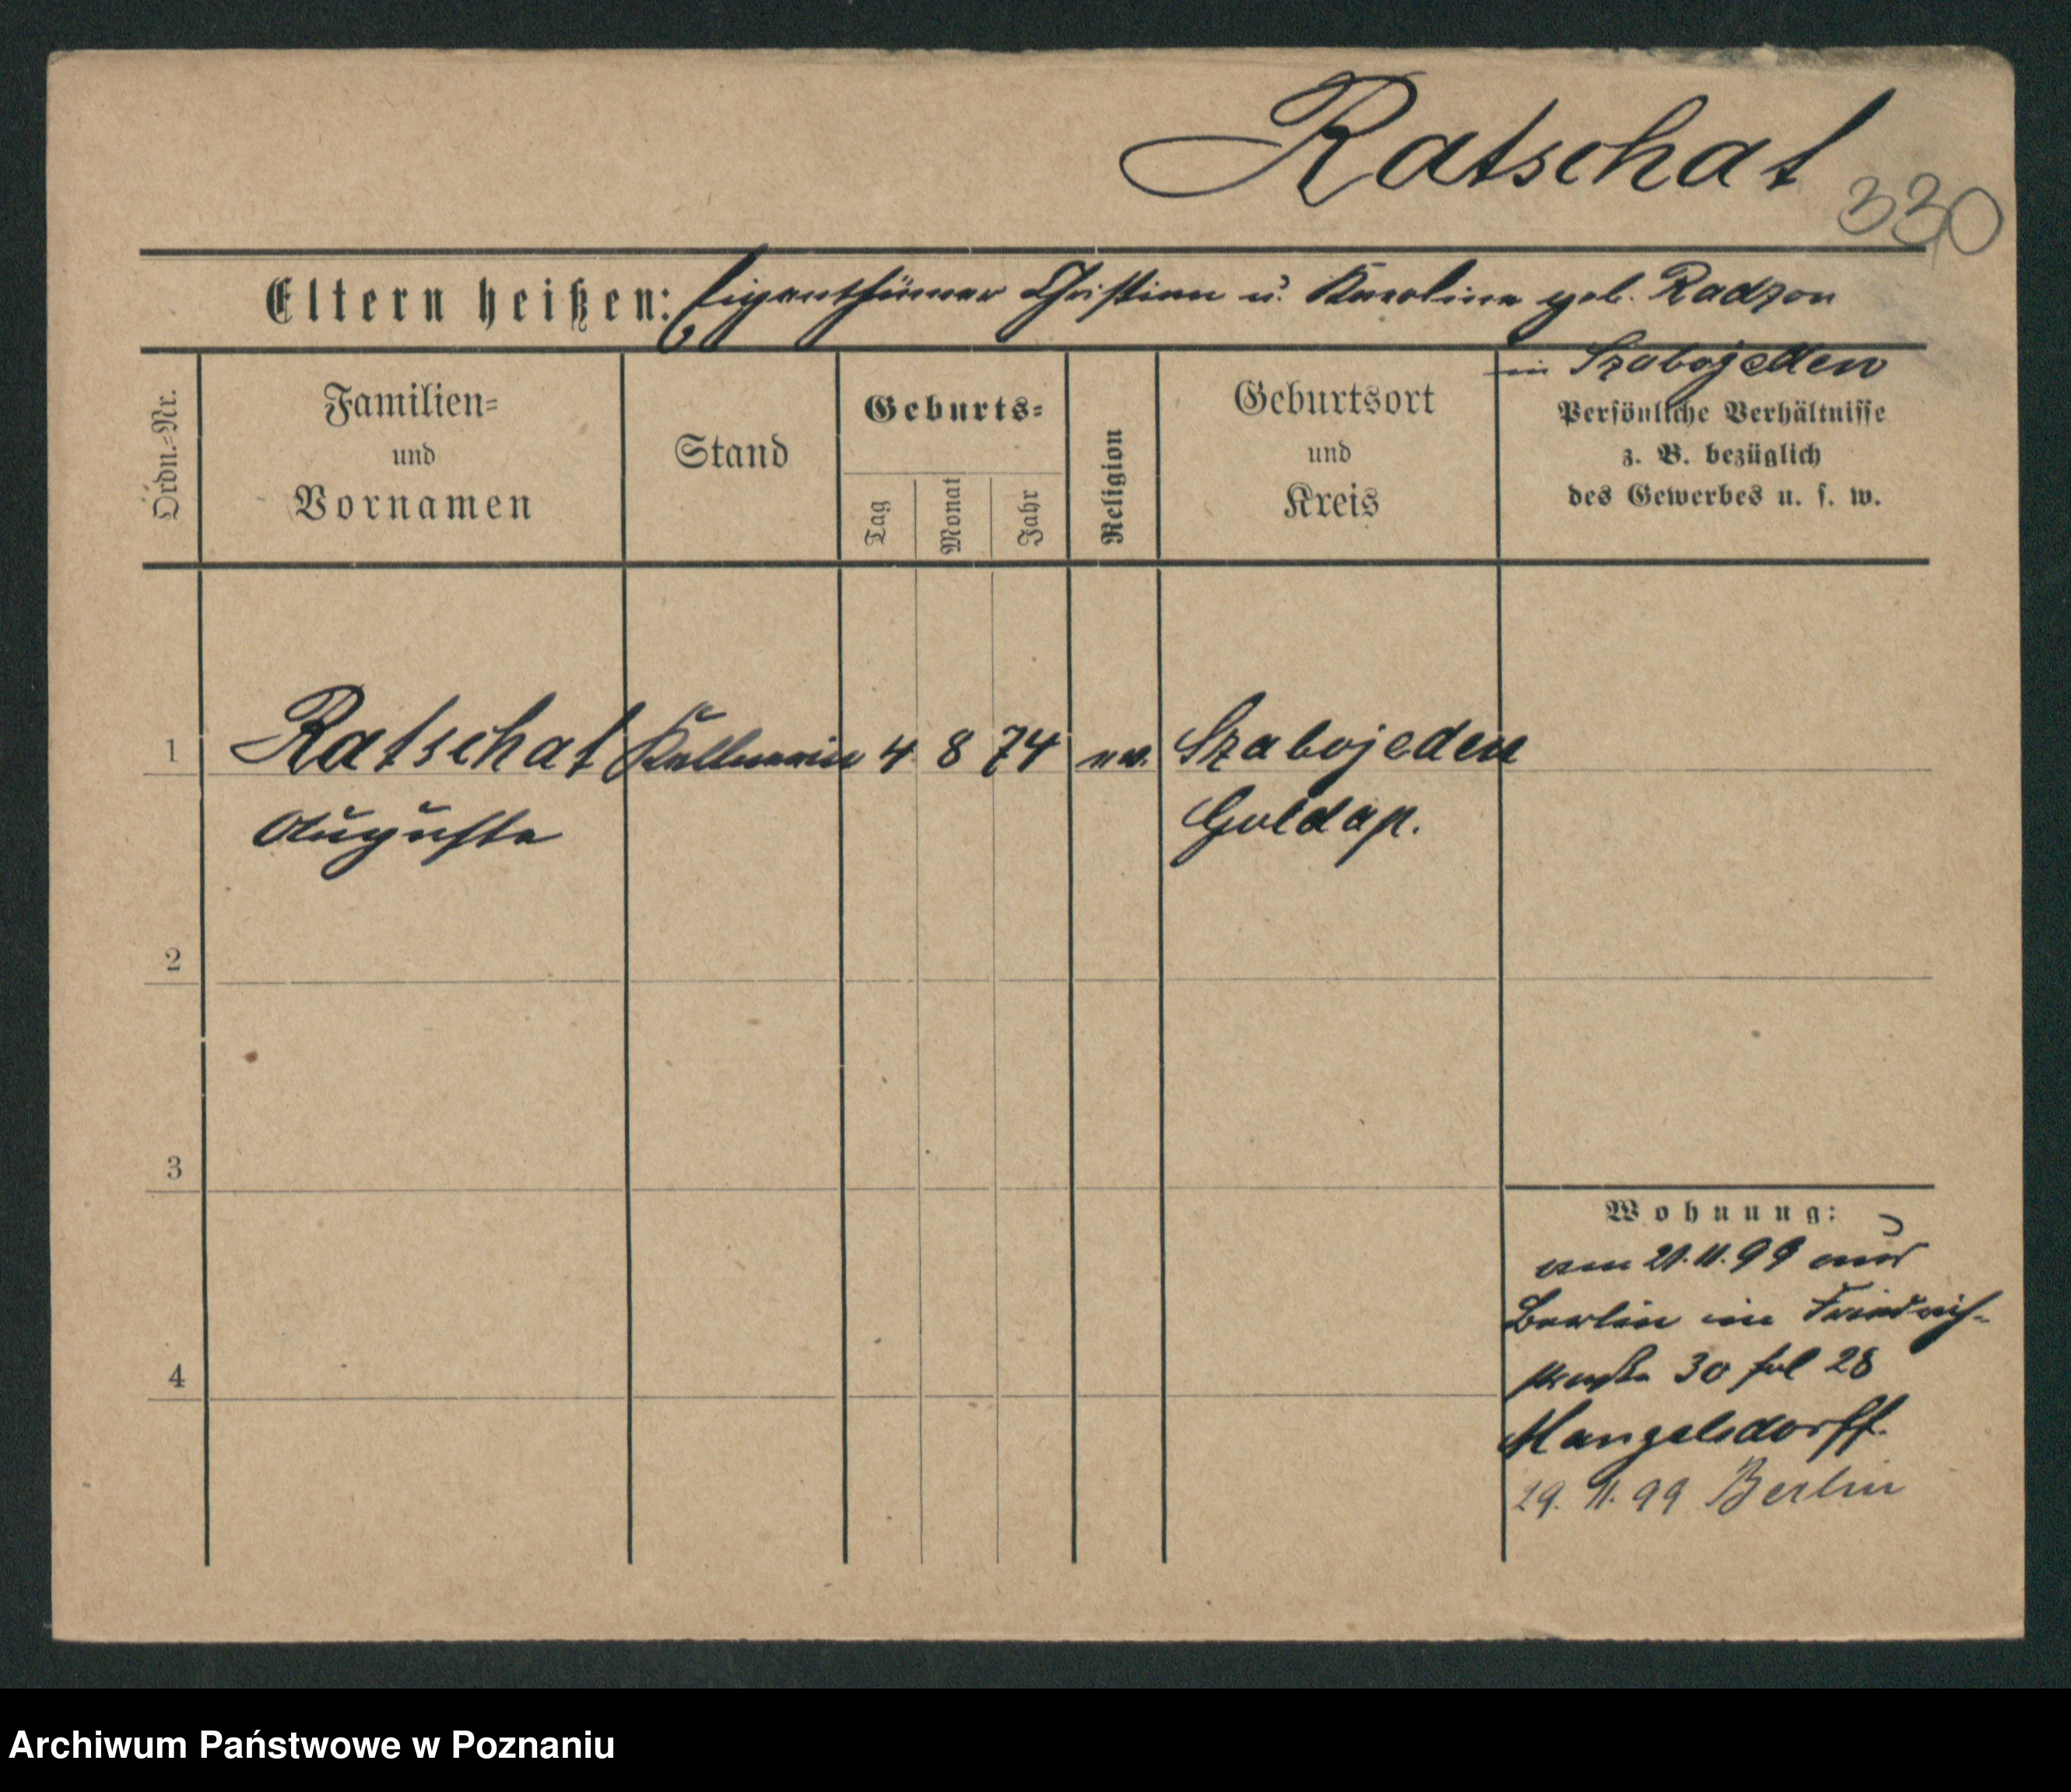 Ratschat
330
Eltern heißen: Eigenthümer Christian u. Karoline geb. Radzon
in Szabojeden
Ordn.-Nr.
Familien- und Vornamen
Stand
Geburts-
Tag
Monat
Jahr
Religion
Geburtsort und Kreis
Persönliche Verhältnisse
z. B. bezüglich
des Gewerbes u. s. w.
1 Ratschat Kellnerin 4 8 74 ev. Szabojeden
Auguste Goldap.
2
3
Wohnung:
am 21. 11. 99 aus
Berlin in Friedrich-
straße 30 bei
Mangelsdorff.
29. 11. 99 Berlin
4
Archiwum Państwowe w Poznaniu